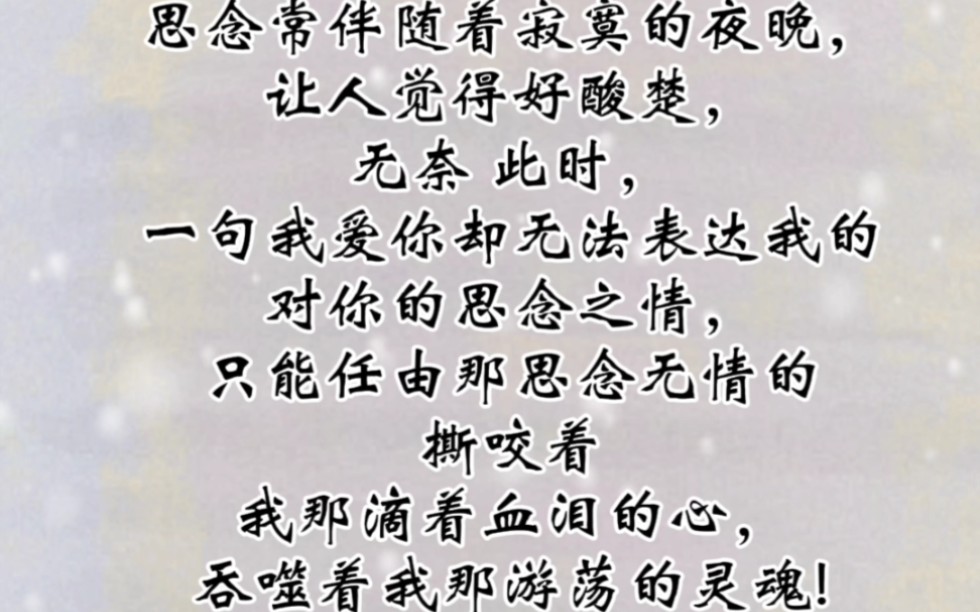 思念常伴随着寂寞的夜晚，
让人觉得好酸楚，
无奈 此时，
一句我爱你却无法表达我的
对你的思念之情，
只能任由那思念无情的
撕咬着
我那滴着血泪的心，
吞噬着我那游荡的灵魂！